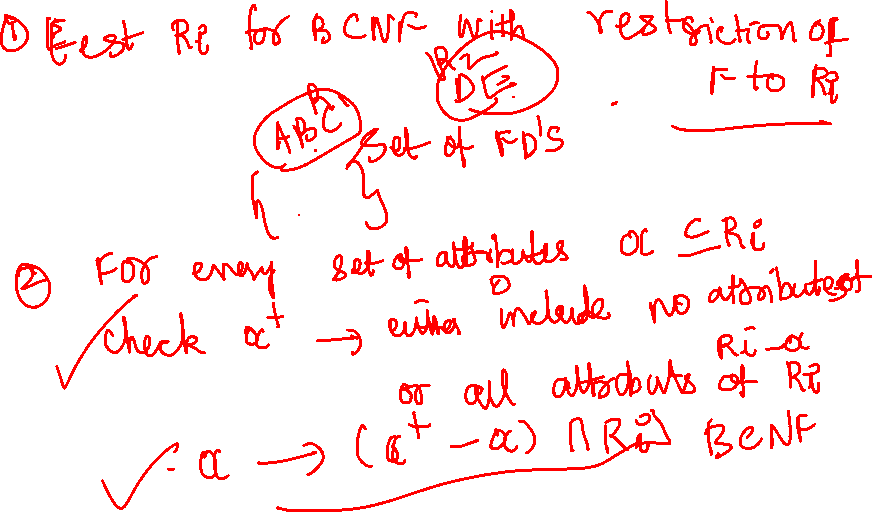 ① Test Ri for BCNF with restriction of
F to Ri
R2
DE
R1
ABC
Set of FD'S
{ . }
② For every set of attributes α ⊆ Ri
check α⁺ → either include no attributes of
Ri - α
or all attributs of Ri
: α → (α⁺ - α) ∩ Ri BCNF